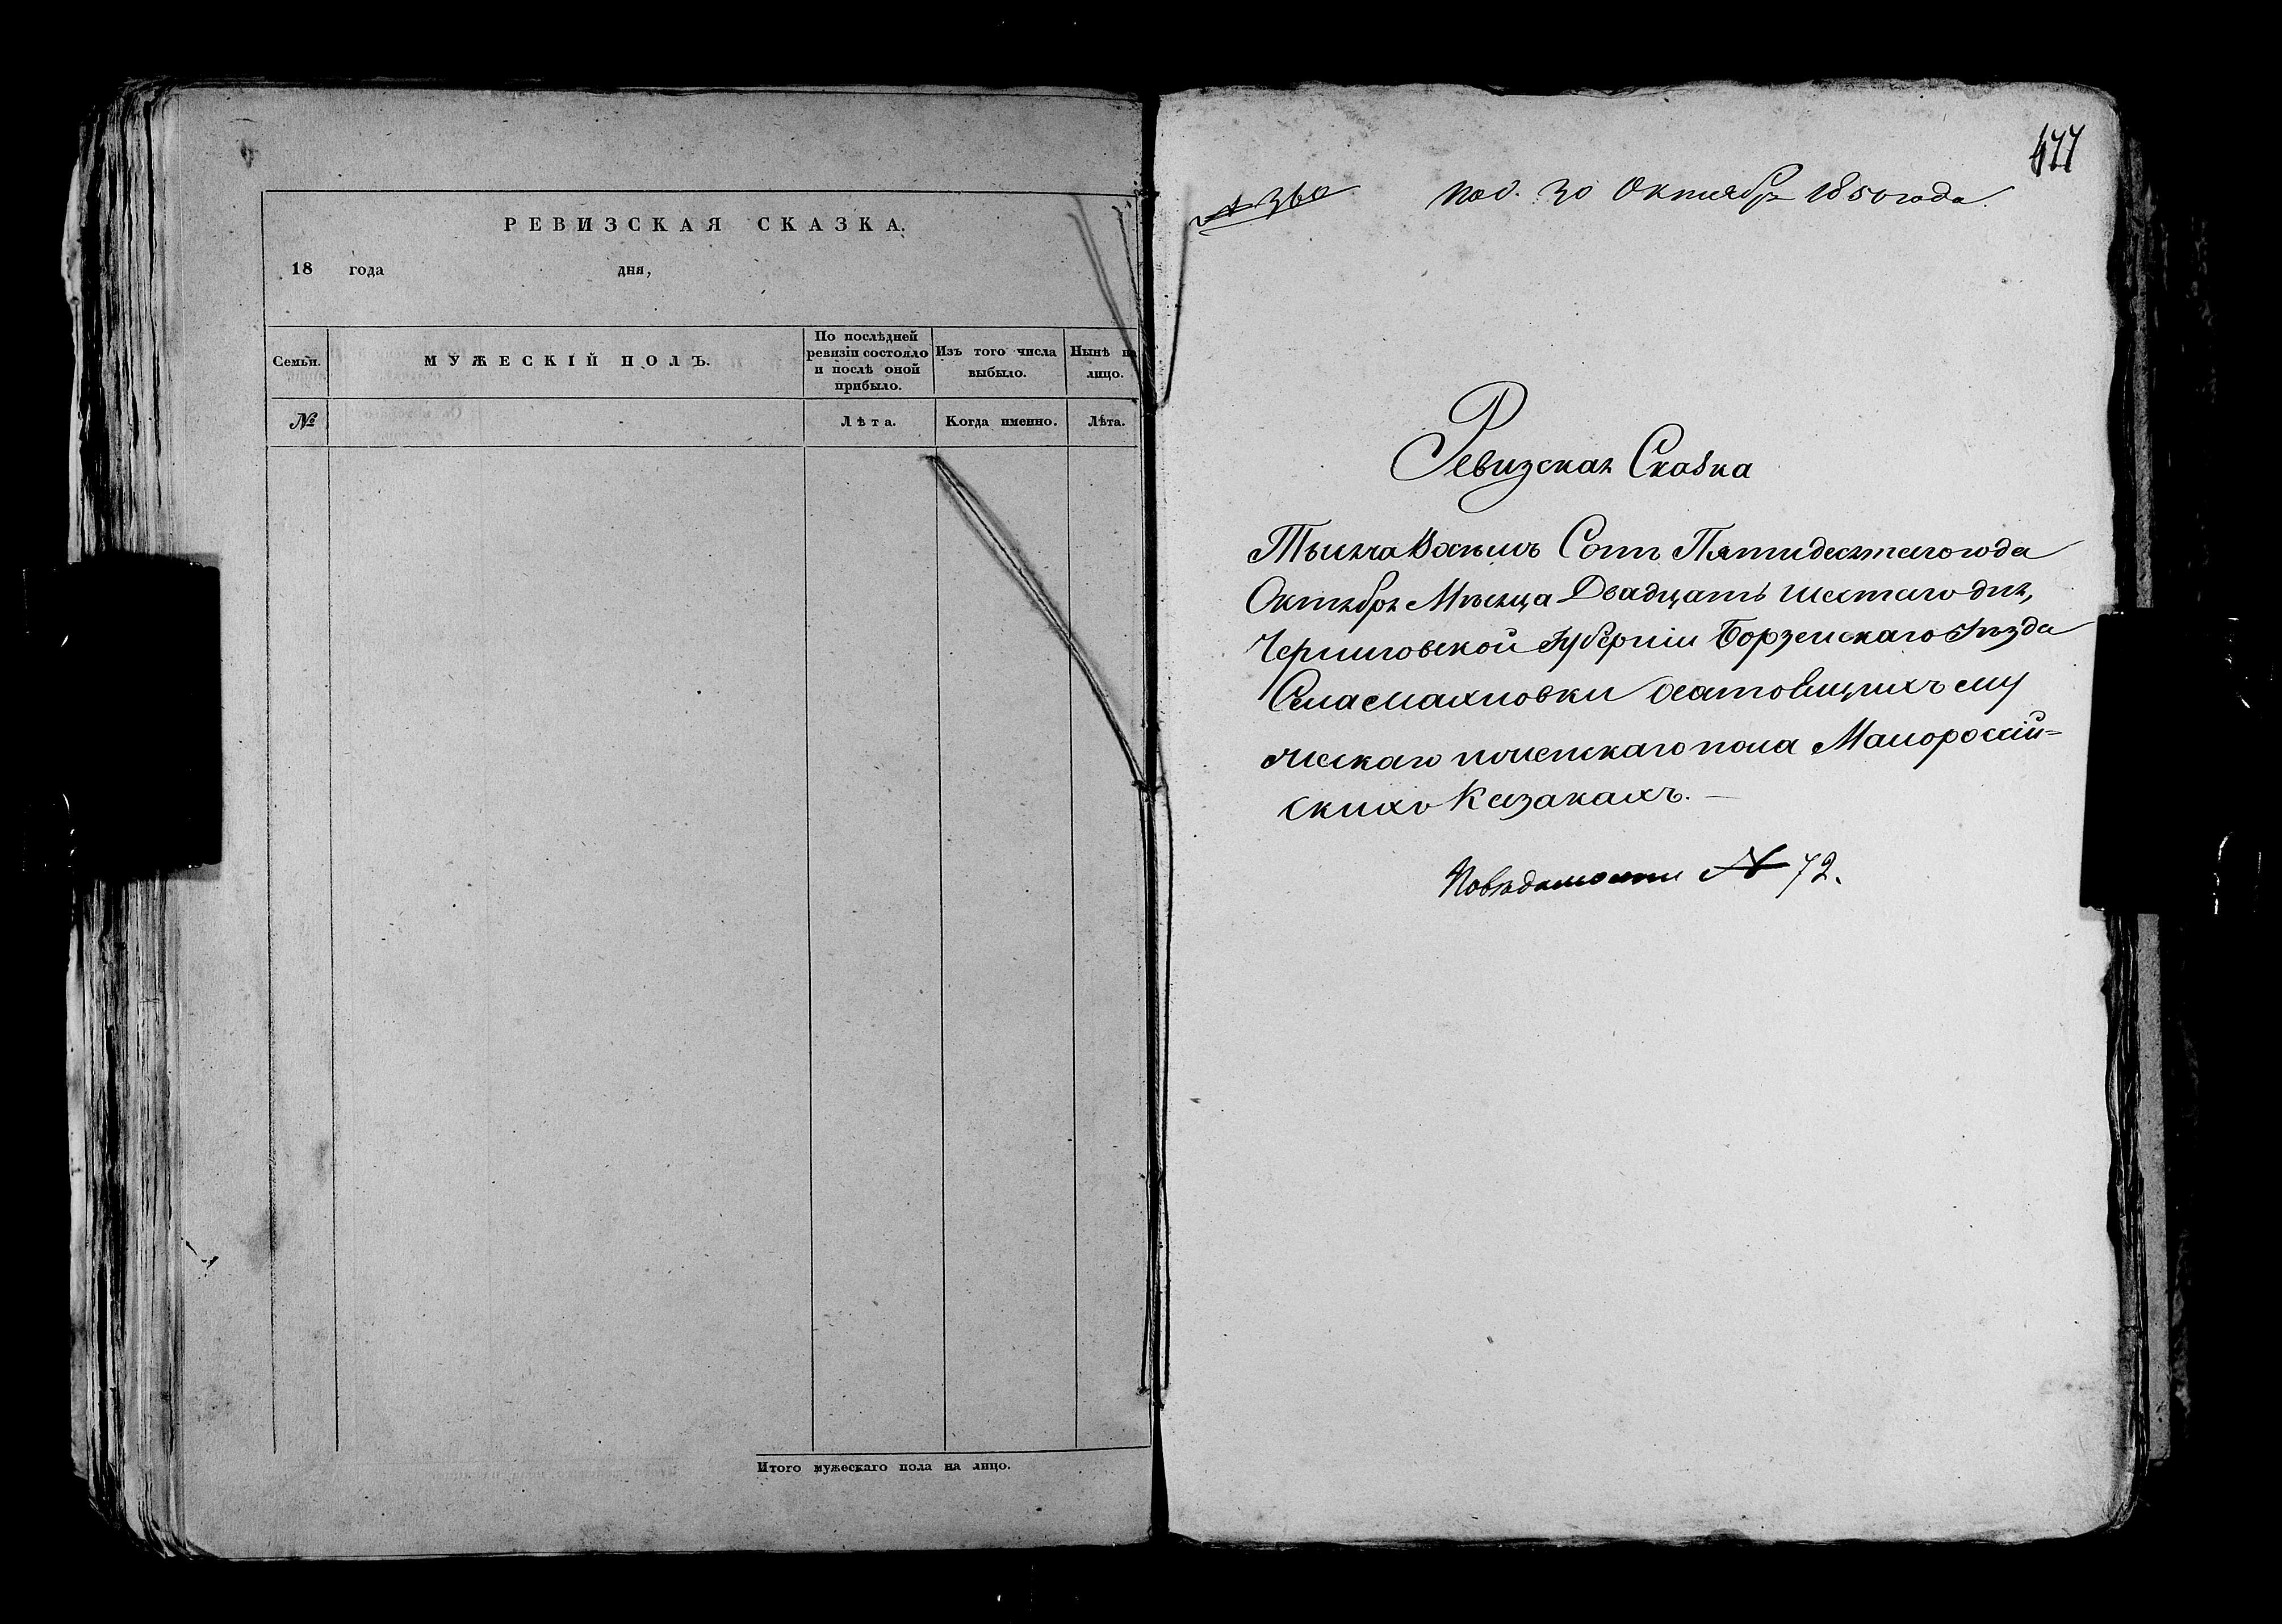 РЕВИЗСКАЯ СКАЗКА.
18 года дня,
Семьи.
МУЖЕСКІЙ ПОЛЪ.
По послѣдней
ревизіи состояло
и послѣ оной
прибыло.
Изъ того числа
выбыло.
Нынѣ на
лицо.
№
Лѣта.
Когда именно.
Лѣта.
Итого мужескаго пола на лицо.
477
№ 360
Под. 30 Октября 1850 года.
Ревизская Сказка
Тысяча Восемь Сотъ Пятидесятаго года
Октября Мѣсяца Двадцать шестаго дня,
Черниговской Губерніи Борзенскаго Уѣзда
Села Махновки о состоящихъ му
жескаго и женскаго пола Малороссій=
скихъ Казакахъ. —
По вѣдомости № 72.